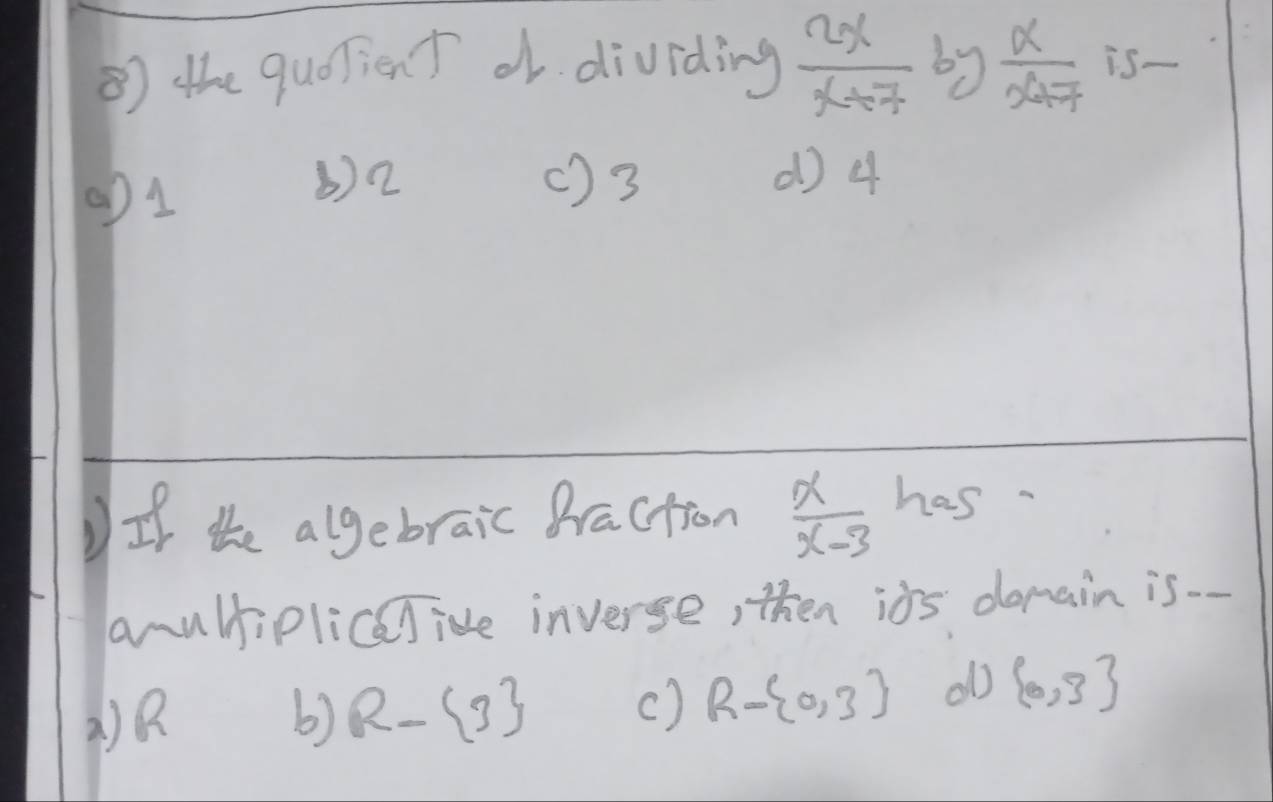 8) the quotient of dividing 2x/x+7 by x/x+7 is-
a) 1 b) 2 c) 3 d) 4
) If the algebraic fraction x/x-3 has
a multiplicative inverse, then its domain is--
a) R b) R-{3} c) R-{0,3} d) {0,3}